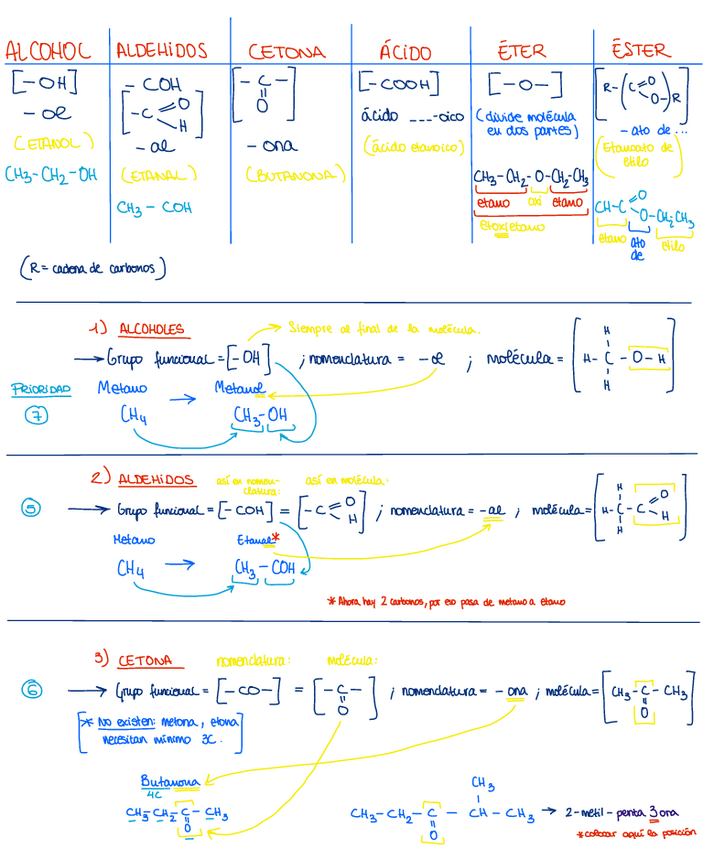 ALCOHOL ALDEHIDOS CETONA ÁCIDO ÉTER ÉSTER
[-OH] - COH [-C-] [-COOH] [-O-] [R-(C=O
[-C=O O O-)R]
H]
-ol -al - ona ácido ___-oico (divide molécula - ato de ...
en dos partes)
(ETANOL) (ETANAL) (BUTANONA) (ácido etanoico) (Etanoato de
etilo)
CH3-CH2-OH CH3 - COH CH3-CH2-O-CH2-CH3 CH-C=O
O-CH2CH3
etano oxi etano etano ato etilo
de
etoxietano
(R= cadena de carbonos)
1) ALCOHOLES
Siempre al final de la molécula.
Grupo funcional = [-OH] ; nomenclatura = -ol ; molécula = [H-C-O-H]
H
H
PRIORIDAD Metano → Metanol
7 CH4 CH3-OH
2) ALDEHIDOS así en nomen- así en molécula:
clatura:
5 → Grupo funcional = [-COH] = [-C=O H] ; nomenclatura = -al ; molécula = [H-C-C=O H]
H
H
Metano Etanal*
CH4 → CH3-COH
* Ahora hay 2 carbonos, por eso pasa de metano a etano
3) CETONA nomenclatura: molécula:
6 → Grupo funcional = [-CO-] = [-C-] ; nomenclatura = - ona ; molécula = [CH3-C-CH3]
O O
* No existen: metona, etona
necesitan mínimo 3C.
Butanona
4C
CH3
CH3-CH2-C-CH3 CH3-CH2-C-CH-CH3 → 2-metil-penta 3 ona
O O
*colocar aquí la posición